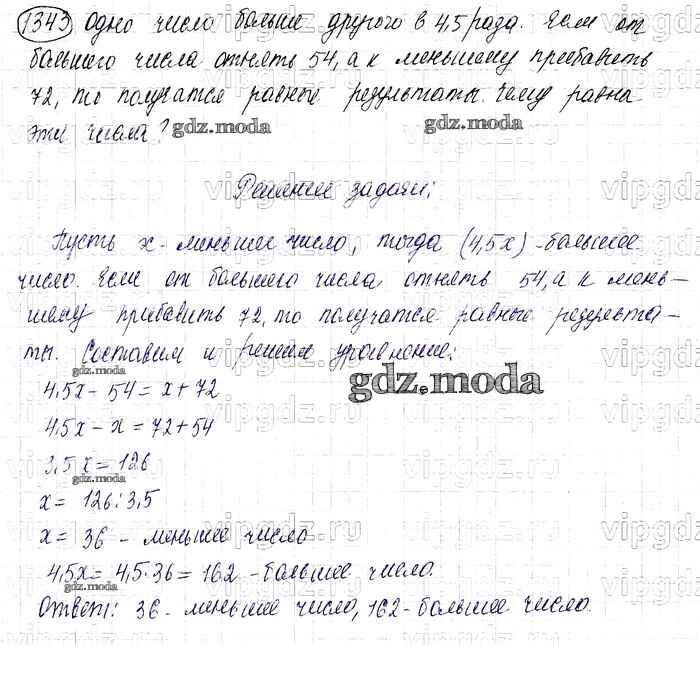 1343 Одно число больше другого в 4,5 раза. Если от
большего числа отнять 54, а к меньшему прибавить
72, то получатся равные результаты. Чему равны
эти числа?
gdz.moda
Решение задачи:
Пусть x - меньшее число, тогда (4,5x) - большее
число. Если от большего числа отнять 54, а к мень-
шему прибавить 72, то получатся равные результа-
ты. Составим и решим уравнение:
gdz.moda
gdz.moda
4,5x - 54 = x + 72
4,5x - x = 72 + 54
3,5x = 126
gdz.moda
x = 126 : 3,5
x = 36 - меньшее число
4,5x = 4,5·36 = 162 - большее число.
gdz.moda
Ответ: 36 - меньшее число, 162 - большее число.
vipgdz.ru